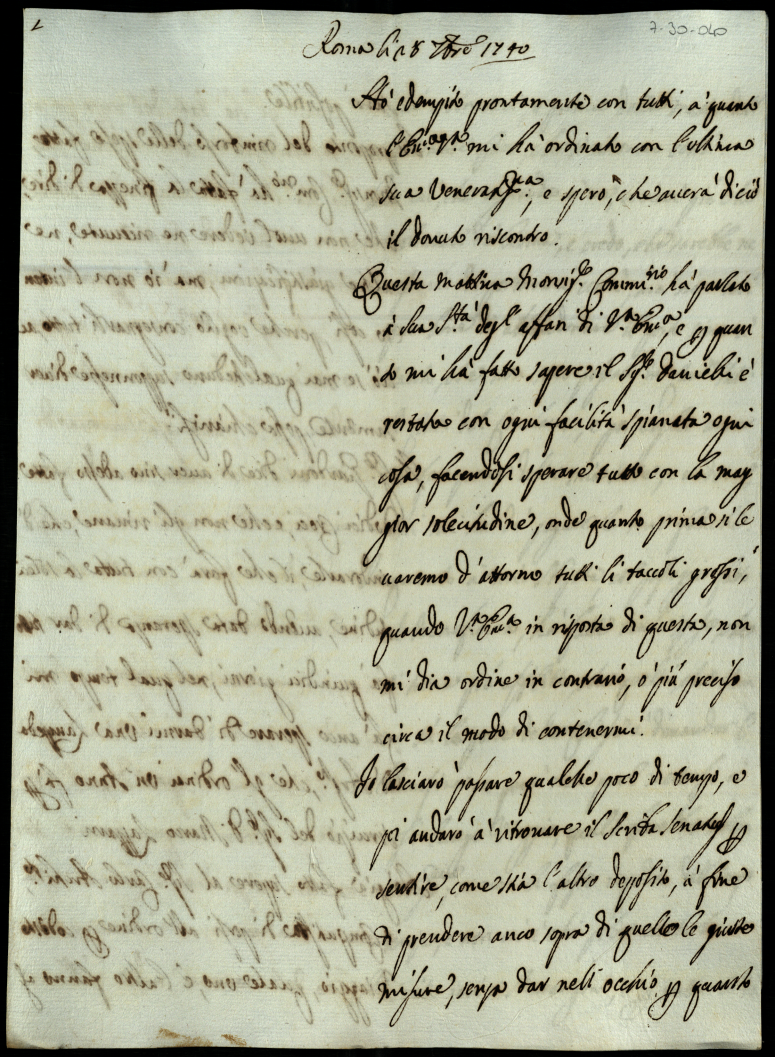 7-30-040
Roma li 28 7bre 1740
Hò esempito prontamente con tutti, à quanto
l'Emza Vra mi hà ordinato con l'ultima
sua veneratma, e spero, che averà di ciò
il dovuto riscontro.
Questa mattina Monsigr Commrio hà parlato
à Sua Stà degl'affari di Va Emza, e p quan
to mi hà fatto sapere il Sigr Danielli è
restata con ogni facilità spianata ogni
cosa, facendosi sperare tutto con la mag
gior solecitudine, onde quanto prima si le
varemo d'attorno tutti li taccoli grossi,
quando Va Emza in risposta di questa, non
mi dia ordine in contrario, ò più preciso
circa il modo di contenermi.
Io lasciarò passare qualche poco di tempo, e
poi andarò à ritrovare il Scriba Senatus p
sentire, come stia l'altro deposito, à fine
di prendere anco sopra di quello le giuste
misure, senza dar nell'occhio p quanto